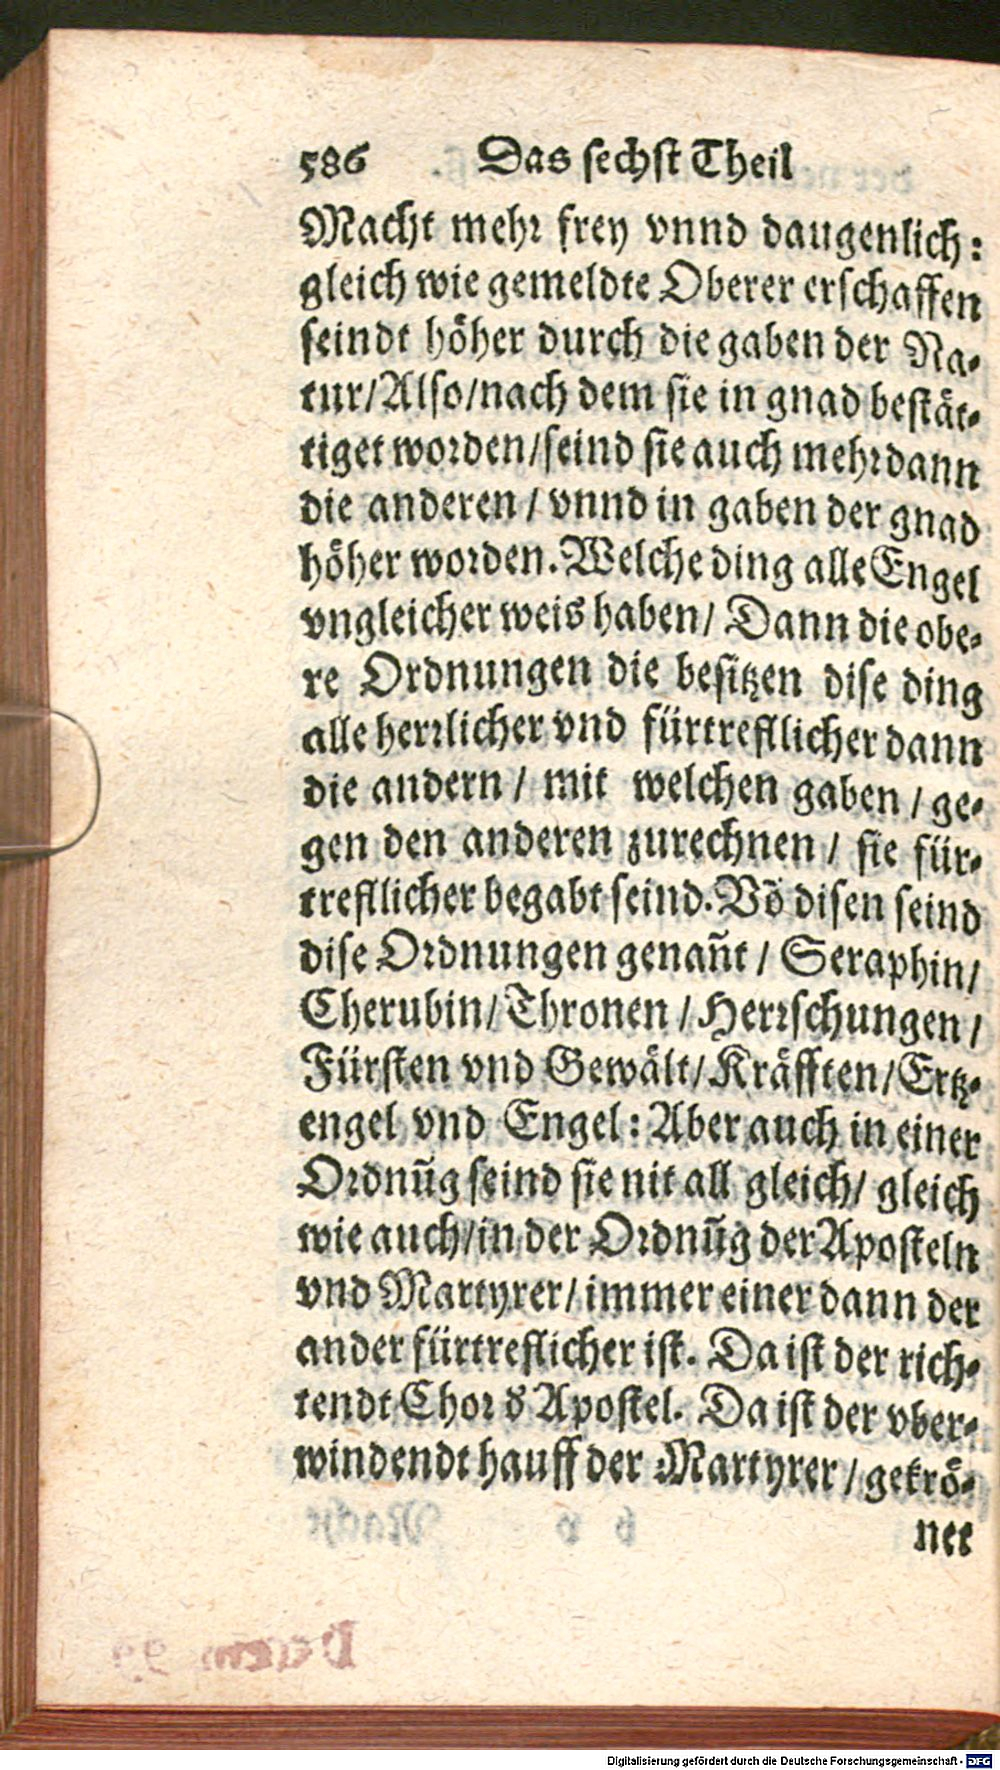 586 Das sechst Theil
Macht mehr frey vnnd daugenlich:
gleich wie gemeldte Oberer erschaffen
seindt höher durch die gaben der Na-
tur/Also/nach dem sie in gnad bestät-
tiget worden/seind sie auch mehr dann
die anderen / vnnd in gaben der gnad
höher worden. Welche ding alle Engel
vngleicher weis haben/ Dann die obe-
re Ordnungen die besitzen dise ding
alle herrlicher vnd fürtrefllicher dann
die andern / mit welchen gaben / ge-
gen den anderen zurechnen / sie für-
trefllicher begabt seind. Võ disen seind
dise Ordnungen genañt / Seraphin/
Cherubin/ Thronen / Herrschungen /
Fürsten vnd Gewält/ Kräfften/ Ertz-
engel vnd Engel: Aber auch in einer
Ordnũg seind sie nit all gleich/ gleich
wie auch/in der Ordnũg der Aposteln
vnd Martyrer/ immer einer dann der
ander fürtreflicher ist. Da ist der rich-
tendt Chor d' Apostel. Da ist der vber-
windendt hauff der Martyrer / gekrö-
net
Digitalisierung gefördert durch die Deutsche Forschungsgemeinschaft - DFG